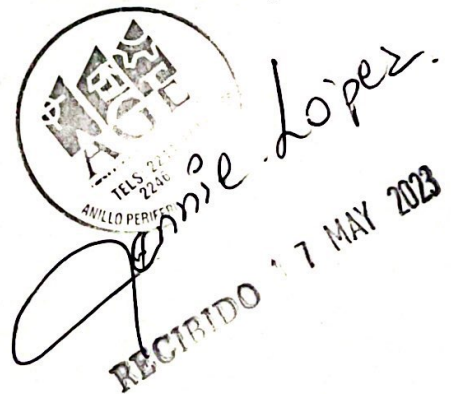 AGE
TELS. 22
2246
ANILLO PERIFER
Jennie López.
RECIBIDO 17 MAY 2023